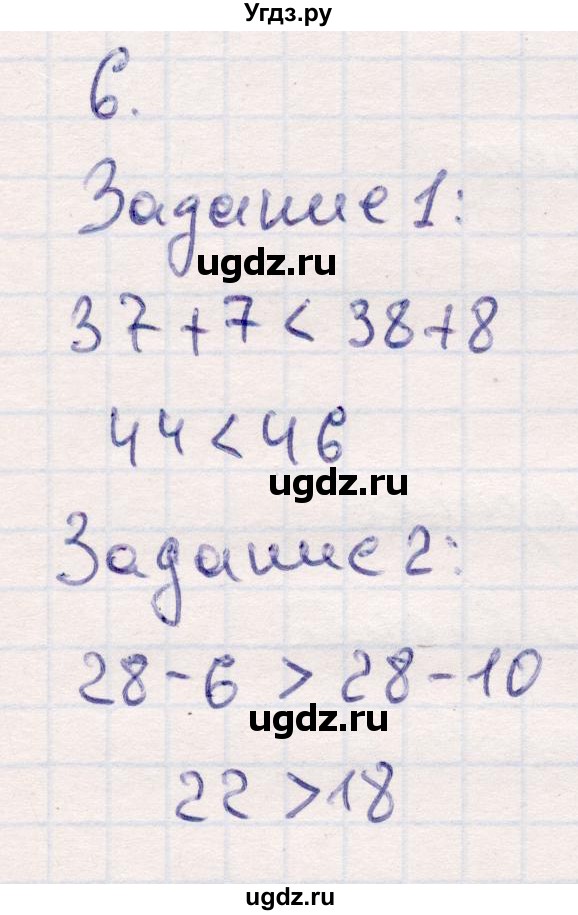 Угдз.ру
6.
Задание 1:
ugdz.ru
37+7<38+8
44<46
ugdz.ru
Задание 2:
28-6>28-10
ugdz.ru
22>18
ugdz.ru